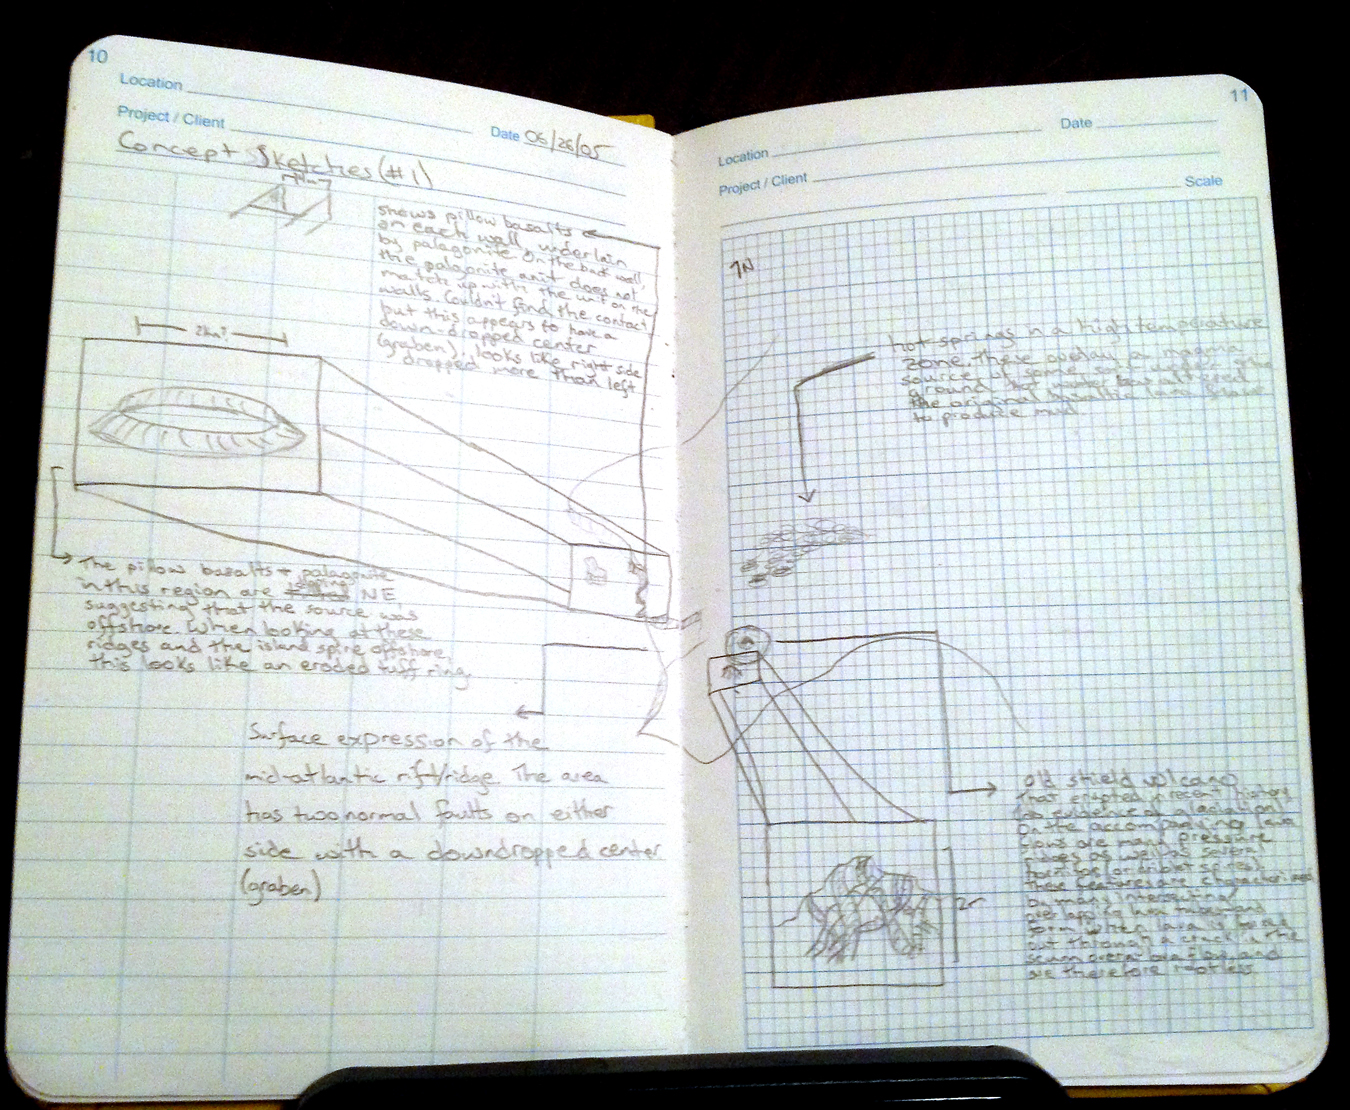 10
Location
Project / Client
Date 06/26/05
Concept Sketches (#1)
shows pillow basalts
on each wall, underlain
by palagonite. On the back wall,
the palagonite unit does not
match up with the unit on the
walls. Couldn't find the contact
but this appears to have a
down-dropped center
(graben), looks like right side
dropped more than left
2km?
The pillow basalts + palagonite
in this region are dipping NE
suggesting that the source was
offshore. When looking at these
ridges and the island spire offshore,
this looks like an eroded tuff ring.
Surface expression of the
mid-atlantic rift/ridge. The area
has two normal faults on either
side with a downdropped center
(graben)
11
Location
Date
Project / Client
Scale
N
hot springs in a high temperature
zone. These overlay a magma
source of some sort under the
ground. Hot water
the original basaltic lava
to produce mud
Old shield volcano
that erupted in recent history
(no evidence of glaciation)
On the accompanying lava
flows are many pressure
ridges as well as several
hornitos (or driblet spires).
These features are characterized
by many intersecting/
overlapping lava tubes and
form when lava is
out through a crack in the
lava flow and
are therefore rootless.